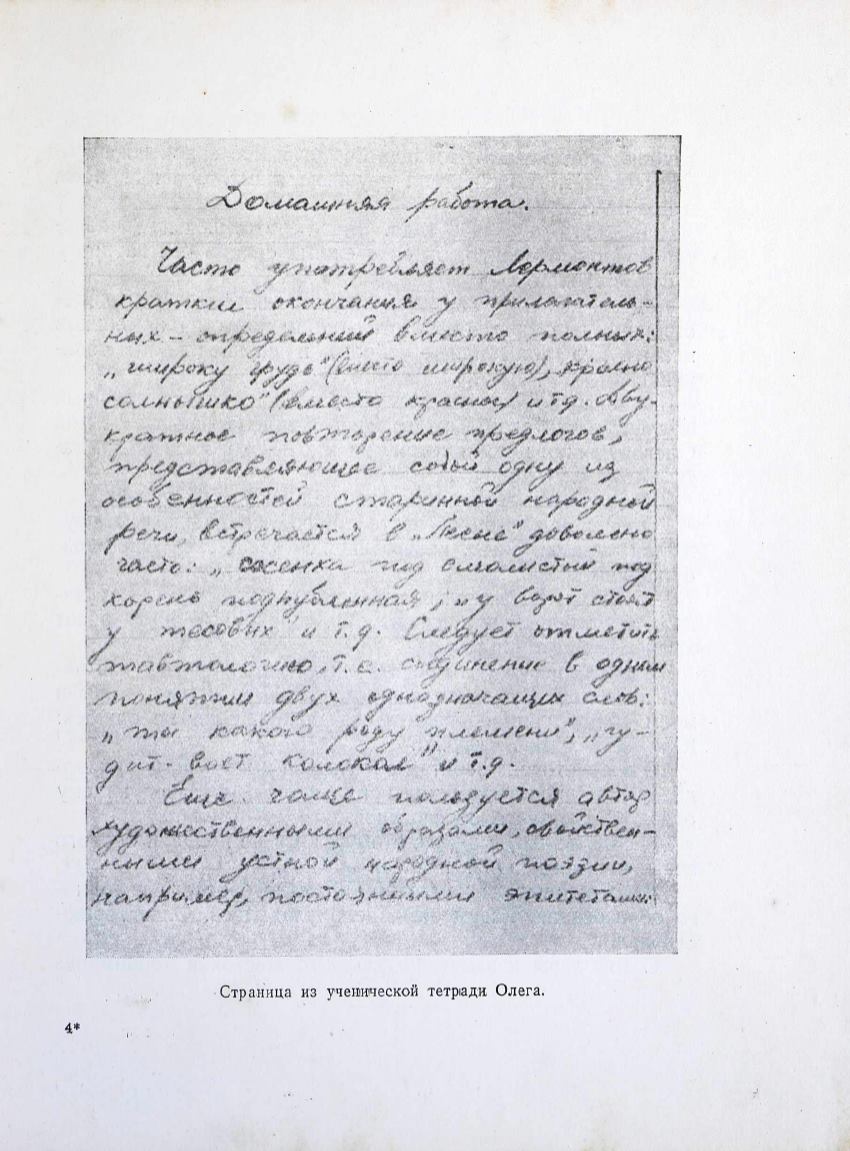 Домашняя работа.
Часто употребляет Лермонтов
краткие окончания у прилагатель-
ных – определений вместо полных:
„широку грудь" (вместо широкую), красно
солнышко" (вместо красное) и т.д. Дву-
кратное повторение предлогов,
представляющее собой одну из
особенностей старинной народной
речи, встречается в „Песне" довольно
часто: „ сосенка под смолистый под
корень подрубленная; „у ворот стоят
у тесовых" и т.д. Следует отметить
тавтологию, т.е. соединение в одном
понятии двух однозначащих слов:
„ты какого роду племени", „гу-
дит-воет колокол" и т.д.
Еще чаще пользуется автор
художественными образами, свойствен-
ными устной народной поэзии,
например, постоянными эпитетами:
Страница из ученической тетради Олега.
4*